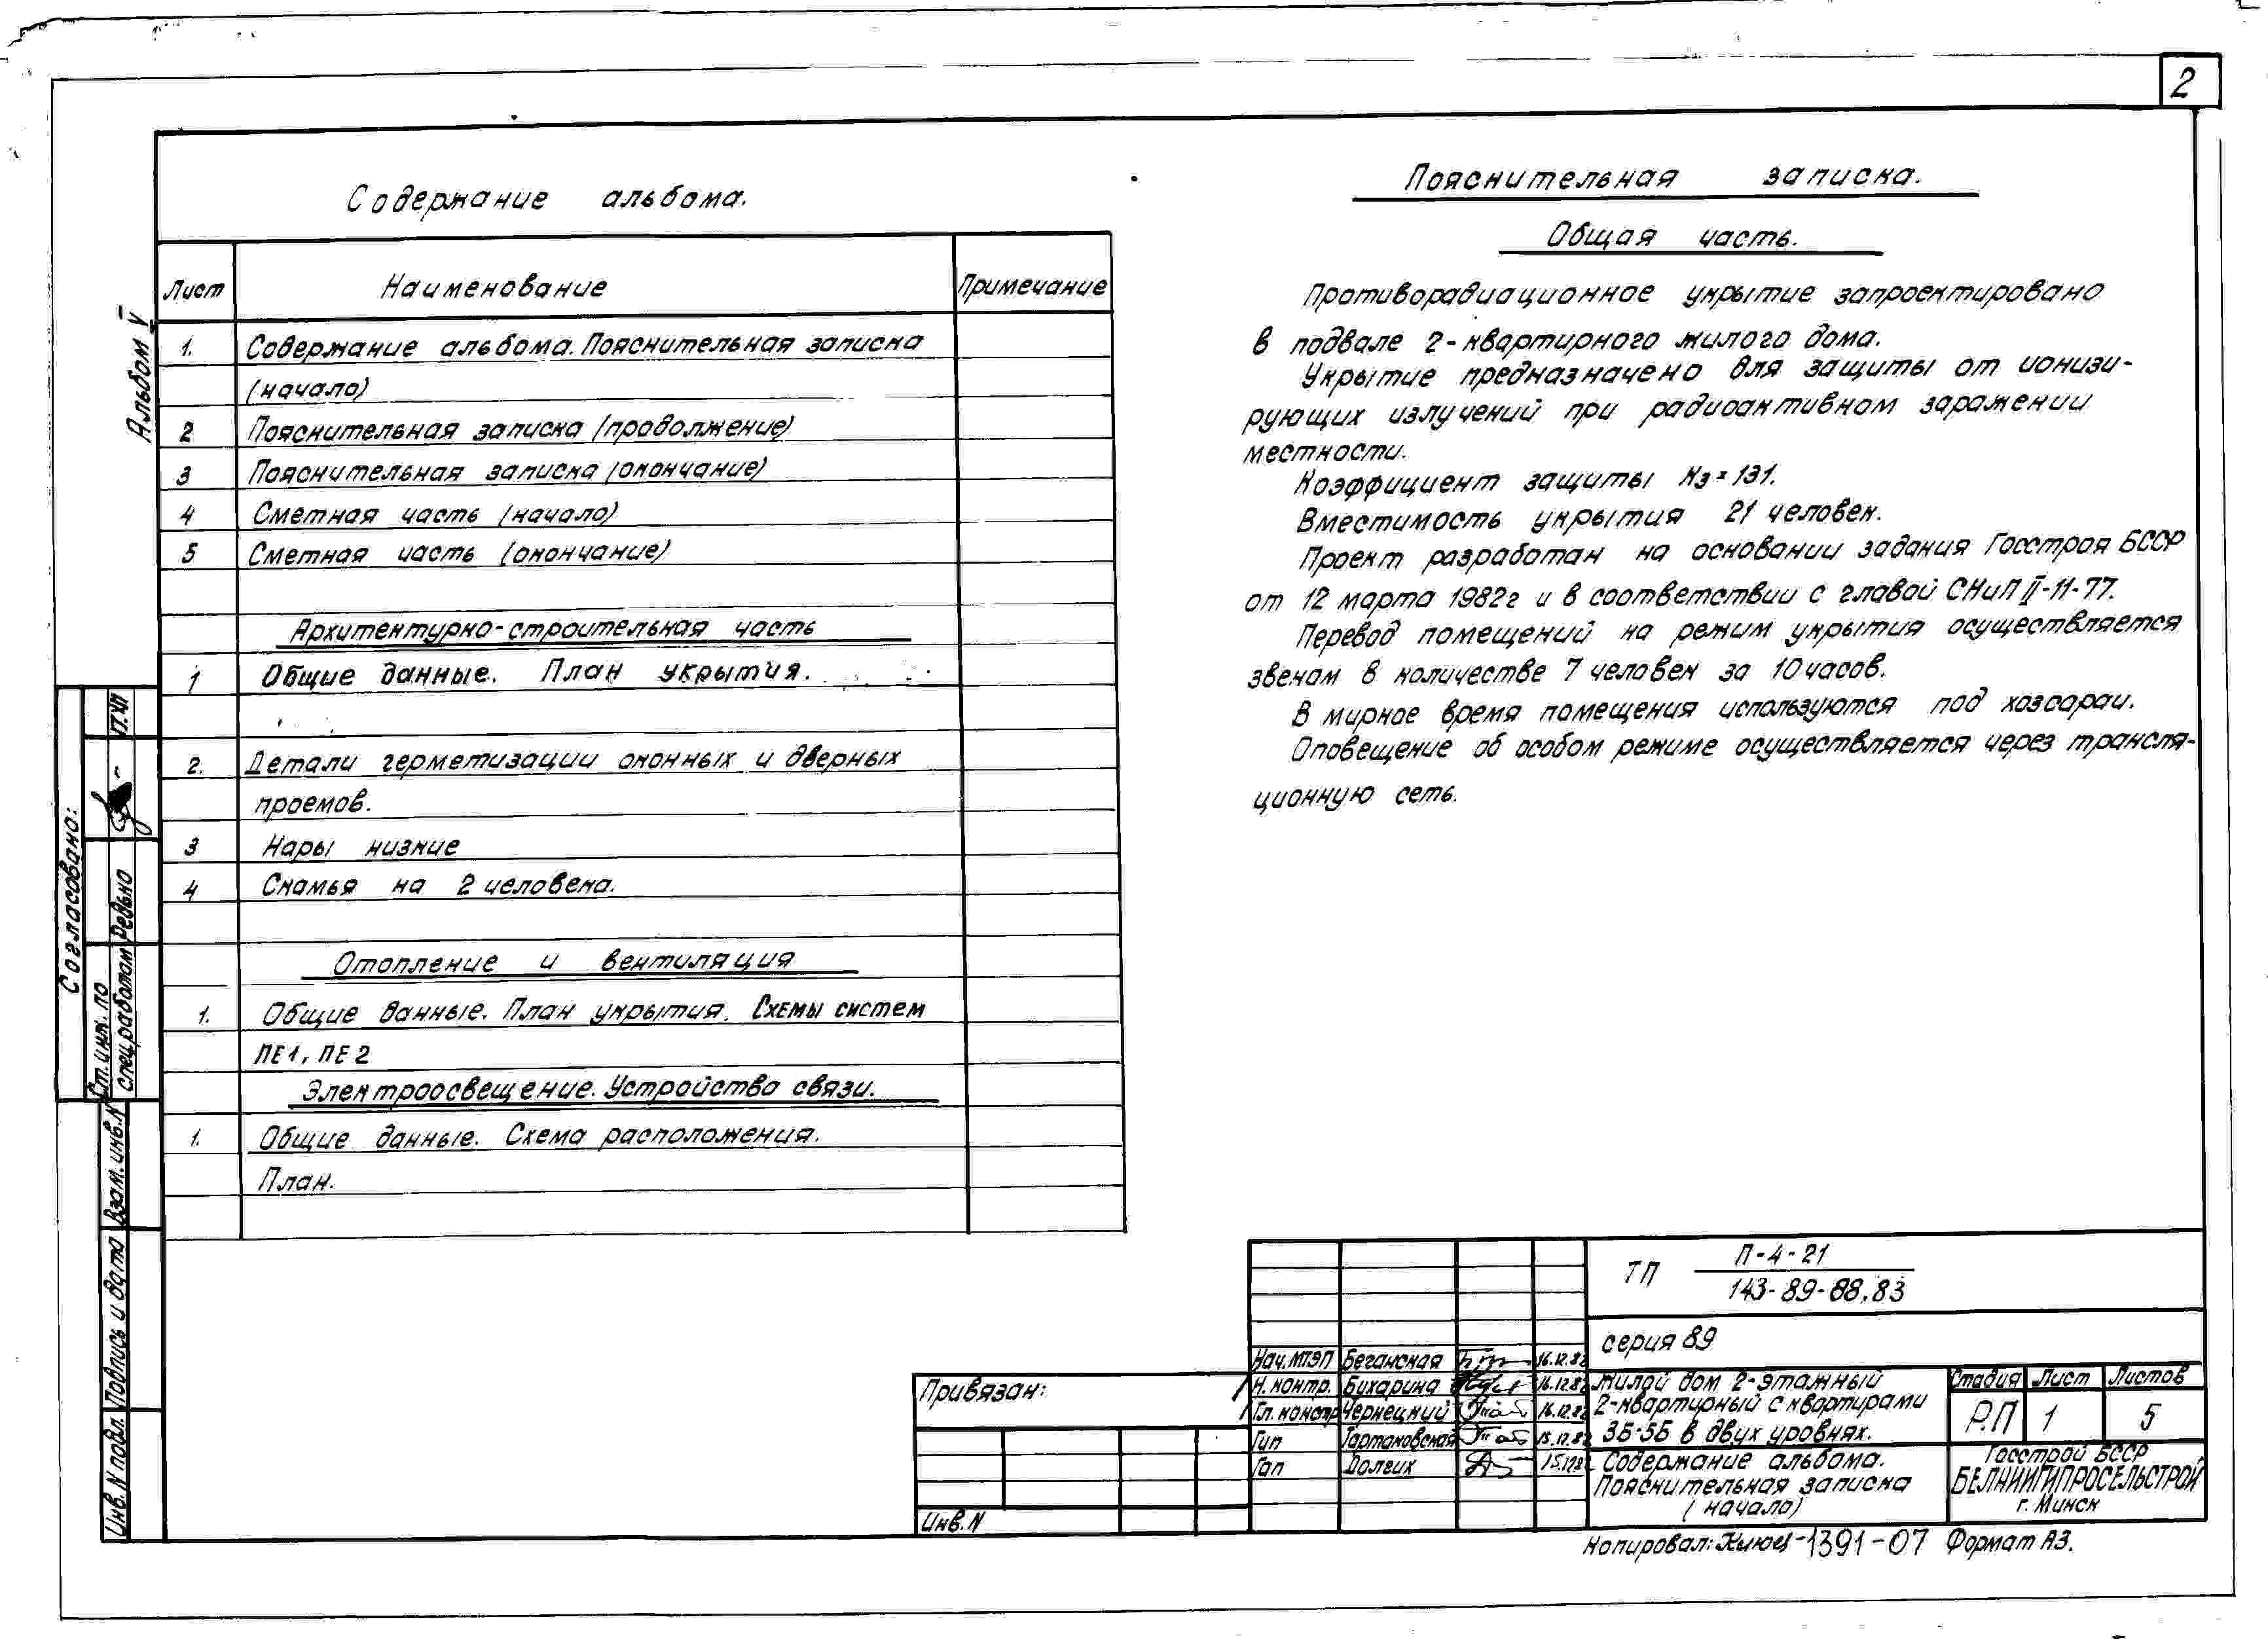 2
Альбом V
Содержание альбома.
Лист Наименование Примечание
1. Содержание альбома. Пояснительная записка
(начало)
2 Пояснительная записка (продолжение)
3 Пояснительная записка (окончание)
4 Сметная часть (начало)
5 Сметная часть (окончание)
Архитектурно-строительная часть
1 Общие данные. План укрытия.
2. Детали герметизации оконных и дверных
проемов.
3 Нары низкие
4 Скамья на 2 человека.
Отопление и вентиляция
1. Общие данные. План укрытия. Схемы систем
ПЕ1, ПЕ2
Электроосвещение. Устройства связи.
1. Общие данные. Схема расположения.
План.
Пояснительная записка.
Общая часть.
Противорадиационное укрытие запроектировано
в подвале 2-квартирного жилого дома.
Укрытие предназначено для защиты от ионизи-
рующих излучений при радиоактивном заражении
местности.
Коэффициент защиты Кз=131.
Вместимость укрытия 21 человек.
Проект разработан на основании задания Госстроя БССР
от 12 марта 1982г и в соответствии с главой СНиП II-11-77.
Перевод помещений на режим укрытия осуществляется
звеном в количестве 7 человек за 10 часов.
В мирное время помещения используются под хозсараи.
Оповещение об особом режиме осуществляется через трансля-
ционную сеть.
Согласовано:
Ст. инж. по
спецработам Редько
Взам. инв. N
Подпись и дата
Инв. N подл.
Привязан:
Инв. N
Нач. МТЭП Беганская 16.12.82
Н. контр. Бухарина 16.12.82
Гл. констр Чернецкий 16.12.82
Гип Тартаковская 15.12.82
Гап Долгих 15.12.82
ТП П-4-21
143-89-88.83
серия 89
Жилой дом 2-этажный
2-квартирный с квартирами
3Б-5Б в двух уровнях.
Стадия Лист Листов
Р.П 1 5
Содержание альбома.
Пояснительная записка
(начало)
Госстрой БССР
БЕЛНИИГИПРОСЕЛЬСТРОЙ
г. Минск
Копировал: 1391-07 Формат А3.